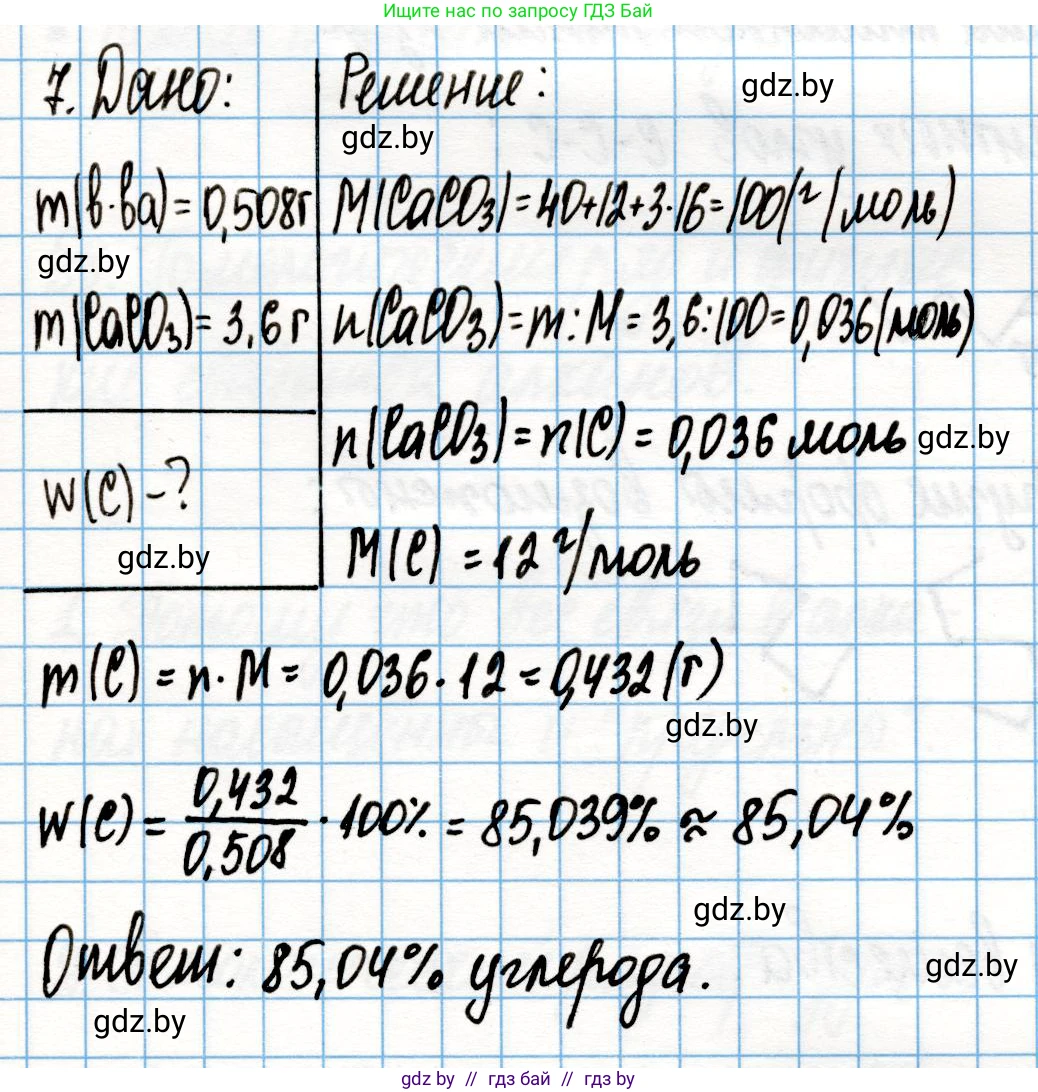 Ищите нас по запросу ГДЗ Бай
7. Дано:
Решение:
gdz.by
gdz.by
m(в-ва) = 0,508г
M(CaCO₃) = 40+12+3·16=100(г/моль)
gdz.by
m(CaCO₃) = 3,6 г
n(CaCO₃) = m : M = 3,6:100=0,036(моль)
n(CaCO₃) = n(C) = 0,036 моль
gdz.by
w(C) -?
gdz.by
M(C) = 12 г/моль
m(C) = n · M = 0,036 · 12 = 0,432 (г)
gdz.by
w(C) = 0,432/0,508 · 100% = 85,039% ≈ 85,04%
gdz.by
Ответ: 85,04% углерода.
gdz.by
gdz.by
gdz.by // гдз бай // gdz.by